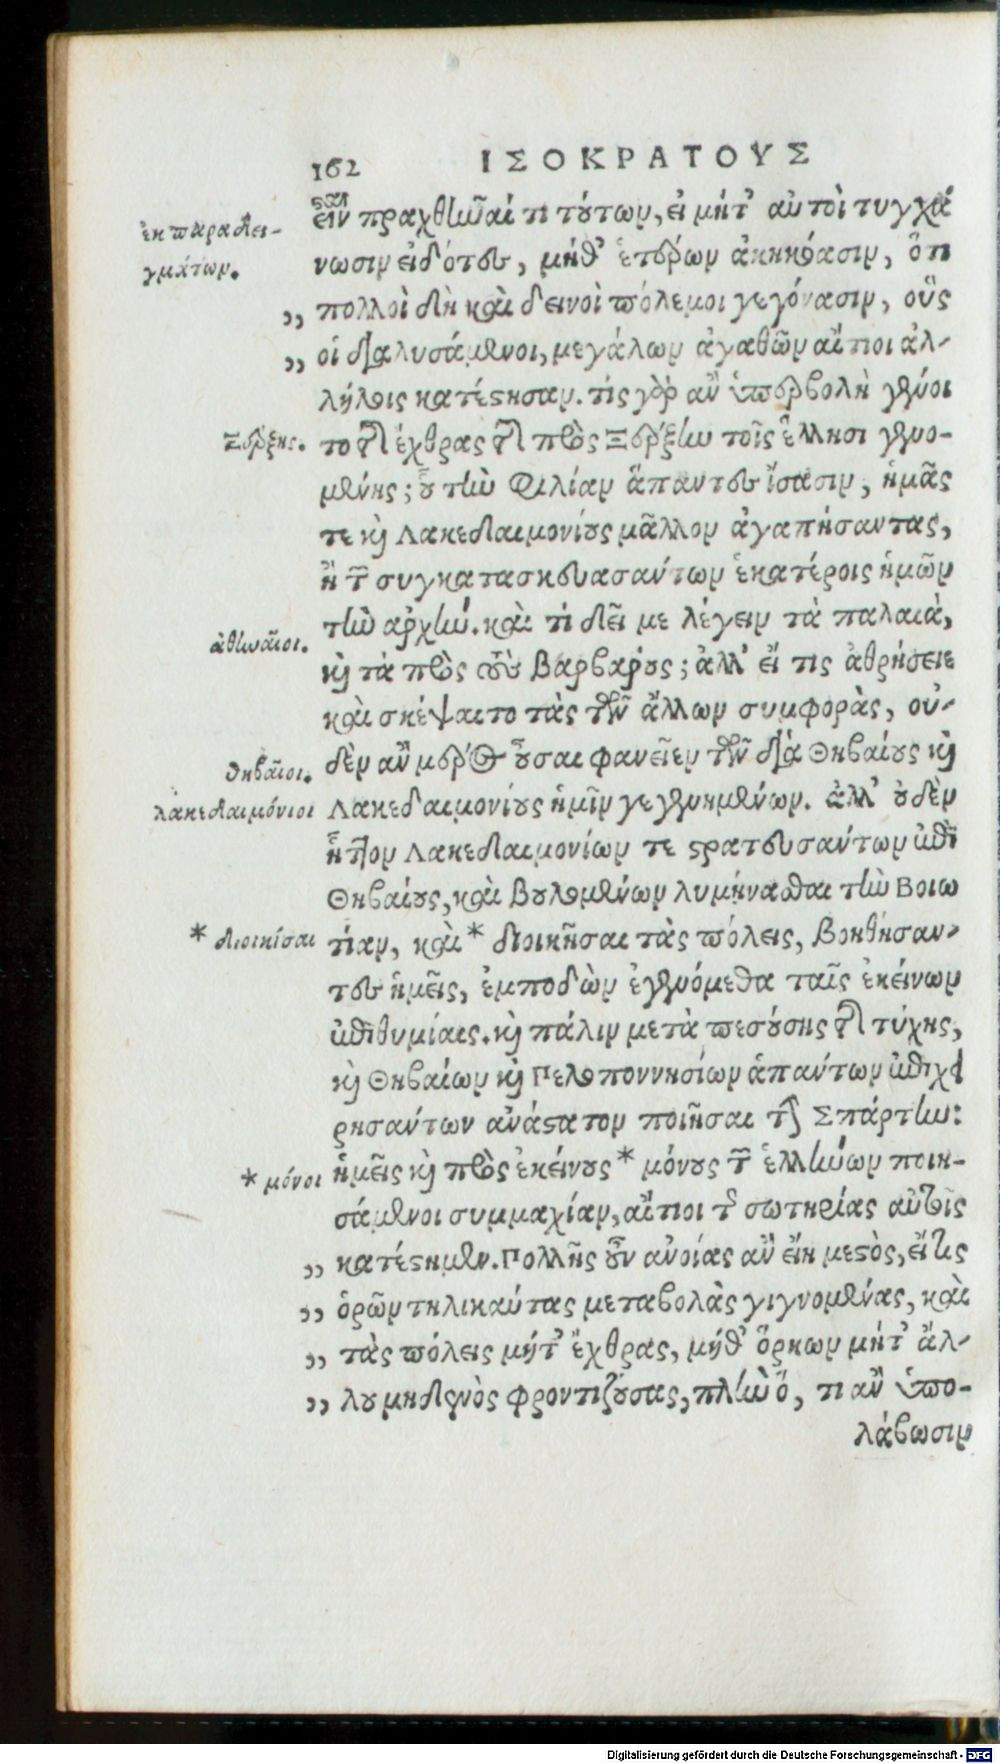 162 ΙΣΟΚΡΑΤΟΥΣ
ἐκ παραδει-
γμάτων.
πραχθῆναί τι τούτων, εἰ μήτ' αὐτοὶ τυγχά
νωσιν εἰδότες, μήθ' ἑτέρων ἀκηκόασιν, ὅτι
„ πολλοὶ δὴ καὶ δεινοὶ πόλεμοι γεγόνασιν, οὓς
„ οἱ διαλυσάμενοι, μεγάλων ἀγαθῶν αἴτιοι ἀλ-
λήλοις κατέστησαν. τίς γὰρ ἂν ὑπερβολὴ γένοι
Ξέρξης.
το τῆς ἔχθρας τῆς πρὸς Ξέρξην τοῖς ἕλλησι γενο-
μένης; οὗ τὴν φιλίαν ἅπαντες ἴσασιν, ἡμᾶς
τε καὶ Λακεδαιμονίους μᾶλλον ἀγαπήσαντας,
ἢ τῶν συγκατασκευασάντων ἑκατέροις ἡμῶν
τὴν ἀρχήν. καὶ τί δεῖ με λέγειν τὰ παλαιὰ,
ἀθηναῖοι.
καὶ τὰ πρὸς τοὺς βαρβάρους; ἀλλ' εἴ τις ἀθρήσειε
καὶ σκέψαιτο τὰς τῶν ἄλλων συμφορὰς, οὐ-
δὲν ἂν μέρος οὖσαι φανεῖεν τῶν διὰ Θηβαίους καὶ
θηβαῖοι.
λακεδαιμόνιοι
Λακεδαιμονίους ἡμῖν γεγενημένων. ἀλλ' οὐδὲν
ἧττον Λακεδαιμονίων τε στρατευσάντων ἐπὶ
Θηβαίους, καὶ βουλομένων λυμήνασθαι τὴν Βοιω
* διοικίσαι
τίαν, καὶ * διοικῆσαι τὰς πόλεις, βοηθήσαν-
τες ἡμεῖς, ἐμποδὼν ἐγενόμεθα ταῖς ἐκείνων
ἐπιθυμίαις. καὶ πάλιν μεταπεσούσης τῆς τύχης,
καὶ Θηβαίων καὶ Πελοποννησίων ἁπάντων ἐπιχει
ρησάντων ἀνάστατον ποιῆσαι τὴν Σπάρτην:
* μόνοι
ἡμεῖς καὶ πρὸς ἐκείνους * μόνους τῶν ἑλλήνων ποιη-
σάμενοι συμμαχίαν, αἴτιοι τῆς σωτηρίας αὐτοῖς
„ κατέστημεν. Πολλῆς οὖν ἀνοίας ἂν εἴη μεστὸς, εἴ τις
„ ὁρῶν τηλικαύτας μεταβολὰς γιγνομένας, καὶ
„ τὰς πόλεις μήτ' ἔχθρας, μήθ' ὅρκων μήτ' ἄλ-
„ λου μηδενὸς φροντιζούσας, πλὴν ὅ, τι ἂν ὑπο-
λάβωσιν
Digitalisierung gefördert durch die Deutsche Forschungsgemeinschaft - DFG